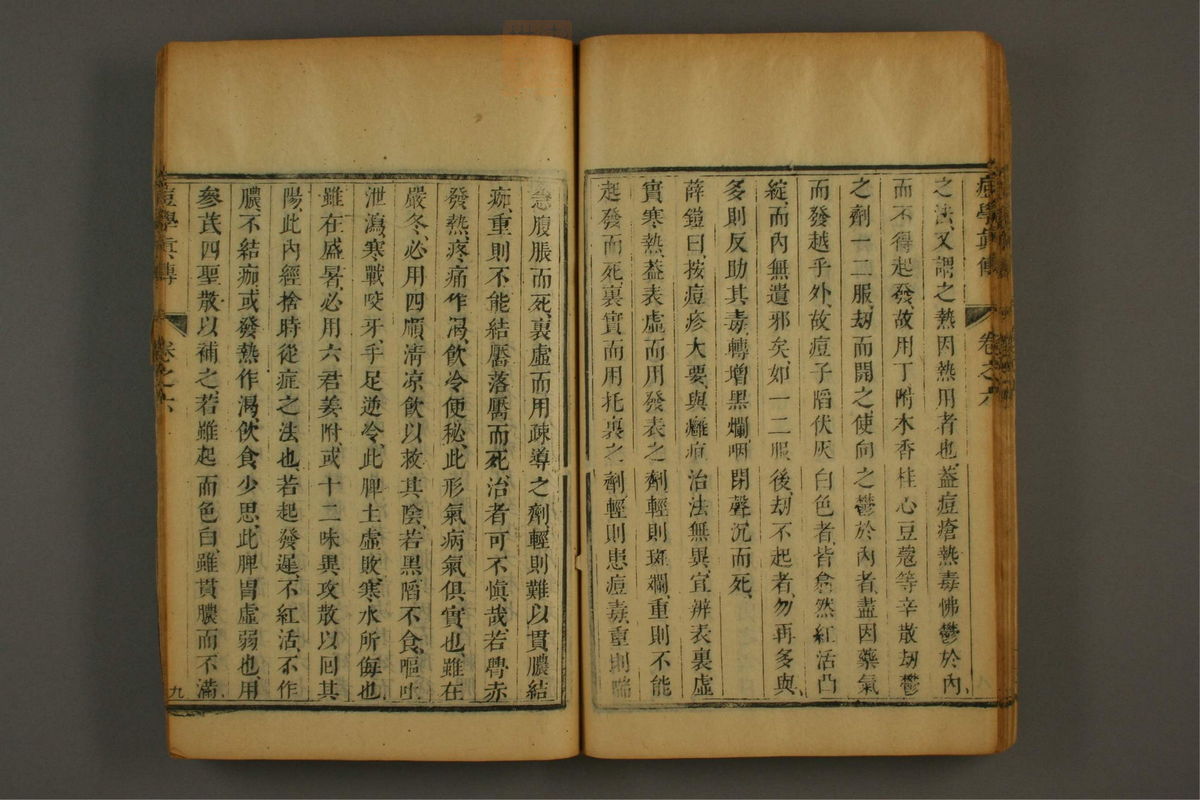 痘學真傳 卷之六
之法又謂之熱因熱用者也葢痘瘡熱毒怫鬱於內
而不得起發故用丁附木香桂心豆蔻等辛散刼鬱
之劑一二服刼而開之使向之鬱於內者盡因藥氣
而發越乎外故痘子陷伏灰白色者皆翕然紅活凸
綻而內無遺邪矣如一二服後刼不起者勿再多與
多則反助其毒轉增黑爛咽閉聲沉而死
薛鎧曰按痘疹大要與癰疽治法無異宜辨表裏虛
實寒熱葢表虛而用發表之劑輕則斑爛重則不能
起發而死裏實而用托裏之劑輕則患痘毒重則喘
急腹脹而死裏虛而用疎導之劑輕則難以貫膿結
痂重則不能結靨落靨而死治者可不慎哉若㿔赤
發熱疼痛作渴飲冷便秘此形氣病氣俱實也雖在
嚴冬必用四順清凉飲以救其陰若黑陷不食嘔吐
泄瀉寒戰咬牙手足逆冷此脾土虛敗寒水所侮也
雖在盛暑必用六君姜附或十二味異攻散以囘其
陽此內經捨時從症之法也若起發遲不紅活不作
膿不結痂或發熱作渴飲食少思此脾胃虛弱也用
參芪四聖散以補之若雖起而色白雖貫膿而不滿
痘學真傳 卷之六 九